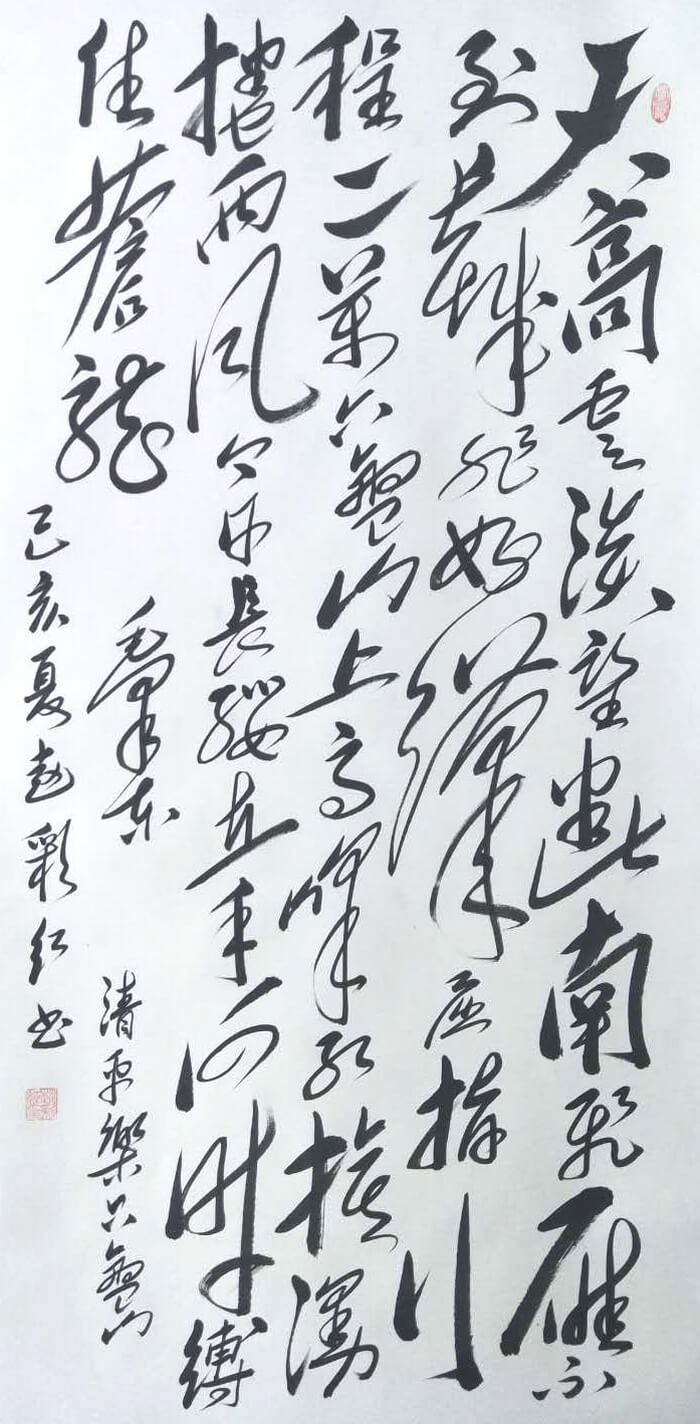 天高雲淡望斷南飛雁不
到長城非好漢屈指行
程二萬六盤山上高峰紅旗漫
捲西風今日長纓在手何時縛
住蒼龍
毛澤東
清平樂六盤山
己亥夏趙彩紅書